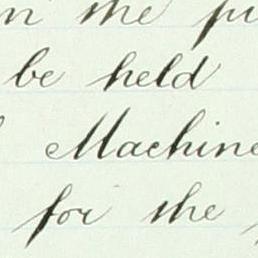 in the
be held
Machine
for the